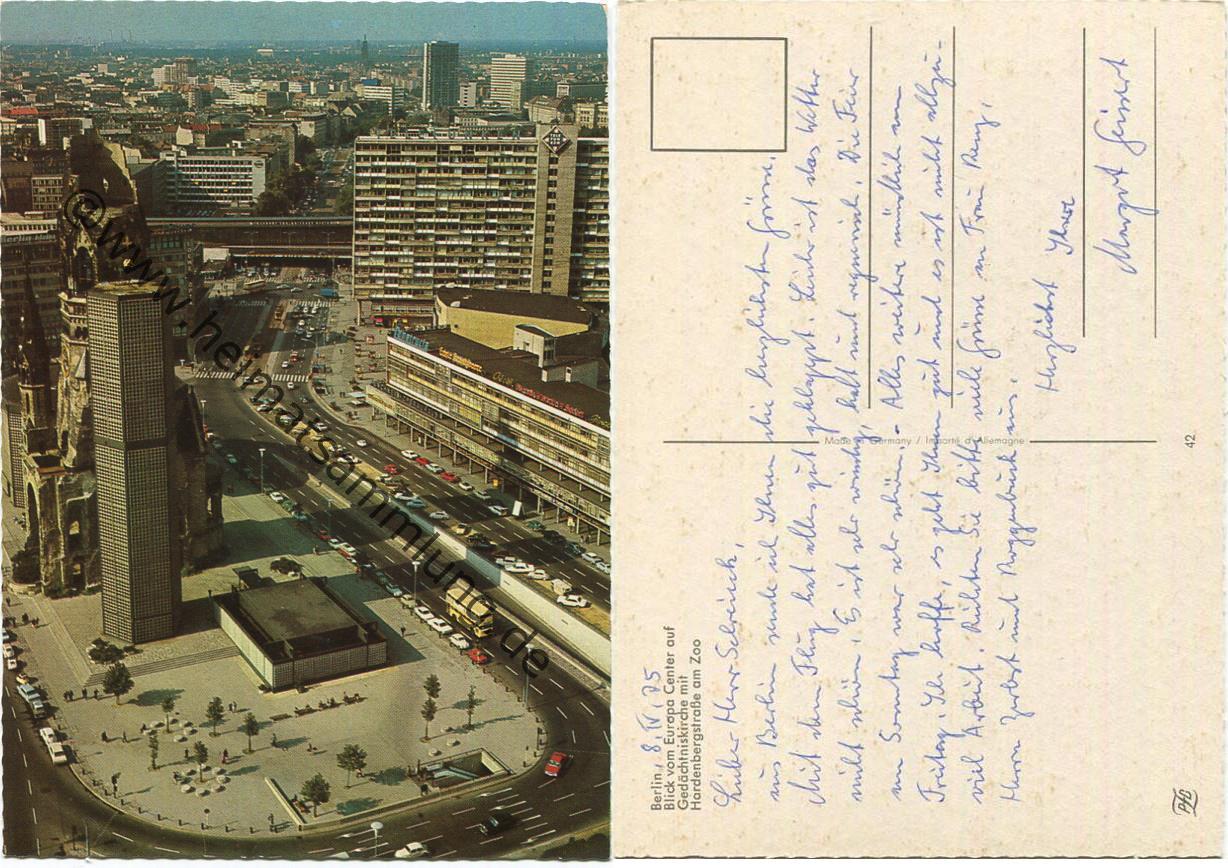 TELE
FUN
KEN
©www.heimatsammlung.de
Berlin, 8. IV. 75
Blick vom Europa Center auf
Gedächtniskirche mit
Hardenbergstraße am Zoo
Made in Germany / Importé d'Allemagne
42
Lieber Herr Schreieck,
aus Berlin sende ich Ihnen die herzlichsten Grüsse.
Mit dem Flug hat alles gut geklappt. Leider ist das Wetter
nicht schön. Es ist sehr windig, kalt und regnerisch. Die Feier
am Sonntag war sehr schön. - Alles weitere mündlich am
Freitag. Ich hoffe, es geht Ihnen gut und es ist nicht allzu-
viel Arbeit. Richten Sie bitte viele Grüsse an Frau Reng,
Herrn und Roggenbuck aus.
Herzlichst Ihre
Margot